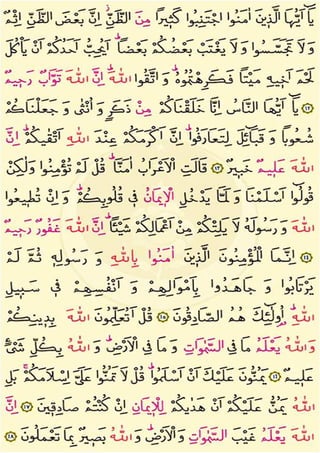 یٰۤاَیُّهَا الَّذِیْنَ اٰمَنُوا اجْتَنِبُوْا كَثِیْرًا مِّنَ الظَّنِّ٘ اِنَّ بَعْضَ الظَّنِّ اِثْمٌ
وَّ لَا تَجَسَّسُوْا وَ لَا یَغْتَبْ بَّعْضُكُمْ بَعْضًاؕ اَیُحِبُّ اَحَدُكُمْ اَنْ یَّاْكُلَ
لَحْمَ اَخِیْهِ مَیْتًا فَكَرِهْتُمُوْهُؕ وَ اتَّقُوا اللّٰهَؕ اِنَّ اللّٰهَ تَوَّابٌ رَّحِیْمٌ
﴿۱۲﴾ یٰۤاَیُّهَا النَّاسُ اِنَّا خَلَقْنٰكُمْ مِّنْ ذَكَرٍ وَّ اُنْثٰى وَ جَعَلْنٰكُمْ
شُعُوْبًا وَّ قَبَآىٕلَ لِتَعَارَفُوْاؕ اِنَّ اَكْرَمَكُمْ عِنْدَ اللّٰهِ اَتْقٰىكُمْؕ اِنَّ
اللّٰهَ عَلِیْمٌ خَبِیْرٌ ﴿۱۳﴾ قَالَتِ الْاَعْرَابُ اٰمَنَّاؕ قُلْ لَّمْ تُؤْمِنُوْا وَ لٰكِنْ
قُوْلُوْۤا اَسْلَمْنَا وَ لَمَّا یَدْخُلِ الْاِیْمَانُ فِیْ قُلُوْبِكُمْؕ وَ اِنْ تُطِیْعُوا
اللّٰهَ وَ رَسُوْلَهٗ لَا یَلِتْكُمْ مِّنْ اَعْمَالِكُمْ شَیْـٴًـاؕ اِنَّ اللّٰهَ غَفُوْرٌ رَّحِیْمٌ
﴿۱۴﴾ اِنَّمَا الْمُؤْمِنُوْنَ الَّذِیْنَ اٰمَنُوْا بِاللّٰهِ وَ رَسُوْلِهٖ ثُمَّ لَمْ
یَرْتَابُوْا وَ جٰهَدُوْا بِاَمْوَالِهِمْ وَ اَنْفُسِهِمْ فِیْ سَبِیْلِ
اللّٰهِؕ اُولٰٓىٕكَ هُمُ الصّٰدِقُوْنَ ﴿۱۵﴾ قُلْ اَتُعَلِّمُوْنَ اللّٰهَ بِدِیْنِكُمْؕ
وَ اللّٰهُ یَعْلَمُ مَا فِی السَّمٰوٰتِ وَ مَا فِی الْاَرْضِؕ وَ اللّٰهُ بِكُلِّ شَیْءٍ
عَلِیْمٌ ﴿۱۶﴾ یَمُنُّوْنَ عَلَیْكَ اَنْ اَسْلَمُوْاؕ قُلْ لَّا تَمُنُّوْا عَلَیَّ اِسْلَامَكُمْۚ بَلِ
اللّٰهُ یَمُنُّ عَلَیْكُمْ اَنْ هَدٰىكُمْ لِلْاِیْمَانِ اِنْ كُنْتُمْ صٰدِقِیْنَ ﴿۱۷﴾ اِنَّ
اللّٰهَ یَعْلَمُ غَیْبَ السَّمٰوٰتِ وَ الْاَرْضِؕ وَ اللّٰهُ بَصِیْرٌۢ بِمَا تَعْمَلُوْنَ ﴿۱۸﴾